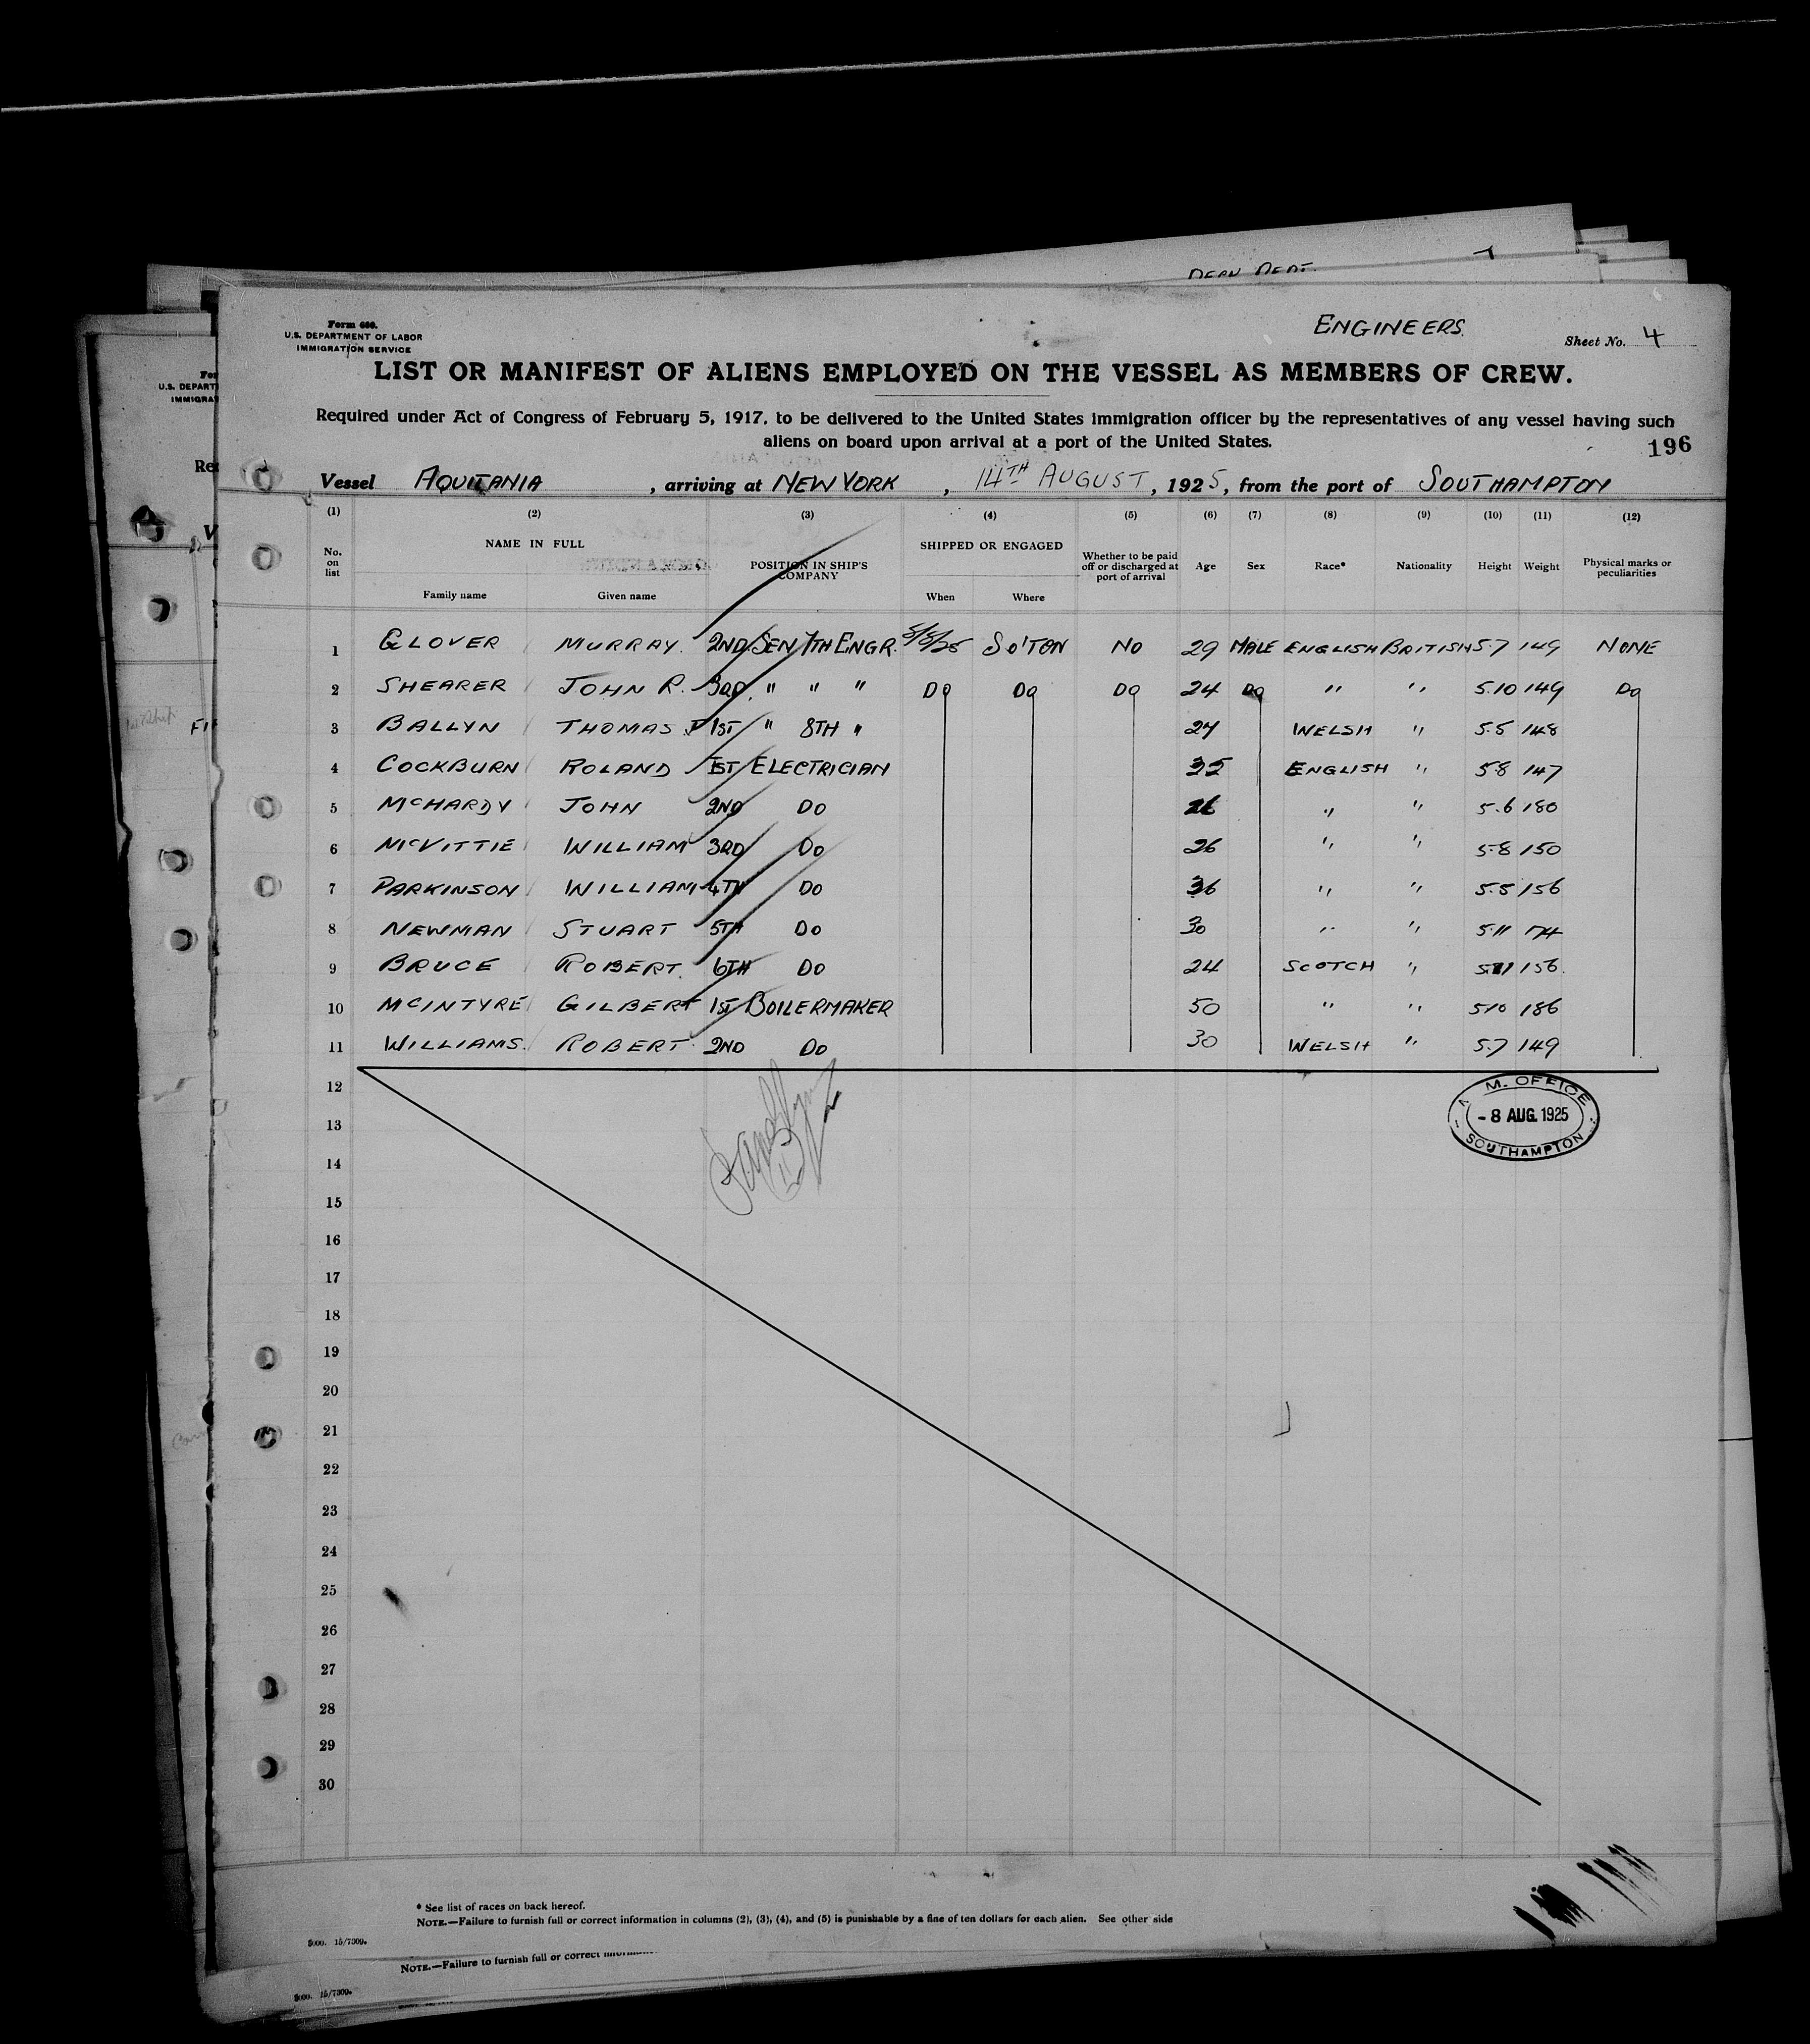 DECK DEPT.
ENGINEERS.
Form 680.
U.S. DEPARTMENT OF LABOR
IMMIGRATION SERVICE
Sheet No. 4
LIST OR MANIFEST OF ALIENS EMPLOYED ON THE VESSEL AS MEMBERS OF CREW.
Required under Act of Congress of February 5, 1917, to be delivered to the United States immigration officer by the representatives of any vessel having such
aliens on board upon arrival at a port of the United States.
196
Vessel AQUITANIA, arriving at NEW YORK, 14TH AUGUST, 1925, from the port of SOUTHAMPTON
(1) (2) (3) (4) (5) (6) (7) (8) (9) (10) (11) (12)
No. on list NAME IN FULL Family name Given name POSITION IN SHIP'S COMPANY SHIPPED OR ENGAGED When Where Whether to be paid off or discharged at port of arrival Age Sex Race* Nationality Height Weight Physical marks or peculiarities
1 GLOVER MURRAY. 2ND. SEN 7TH ENGR. 8/8/25 SO'TON NO 29 MALE ENGLISH BRITISH 5.7 149 NONE
2 SHEARER JOHN R. 3RD. " " " DO DO DO 24 DO " " 5.10 149 DO
3 BALLYN THOMAS 1ST " 8TH " WELSH " 5.5 148
4 COCKBURN ROLAND 1ST ELECTRICIAN ENGLISH " 5.8 147
5 MCHARDY JOHN 2ND DO " " 5.6 180
6 MCVITTIE WILLIAM 3RD DO 26 " " 5.8 150
7 PARKINSON WILLIAM 4TH DO 36 " " 5.5 156
8 NEWMAN STUART 5TH DO 30 " " 5.11 174
9 BRUCE ROBERT. 6TH DO 24 SCOTCH " 156.
10 MCINTYRE GILBERT 1ST BOILERMAKER 50 " " 5.10 186
11 WILLIAMS. ROBERT. 2ND DO 30 WELSH " 5.7 149
12
M. OFFICE
- 8 AUG. 1925
SOUTHAMPTON
13
14
15
16
17
18
19
20
21
22
23
24
25
26
27
28
29
30
* See list of races on back hereof.
NOTE.—Failure to furnish full or correct information in columns (2), (3), (4), and (5) is punishable by a fine of ten dollars for each alien. See other side
5000. 15/7309.
NOTE.—Failure to furnish full or correct
5000. 15/7309.